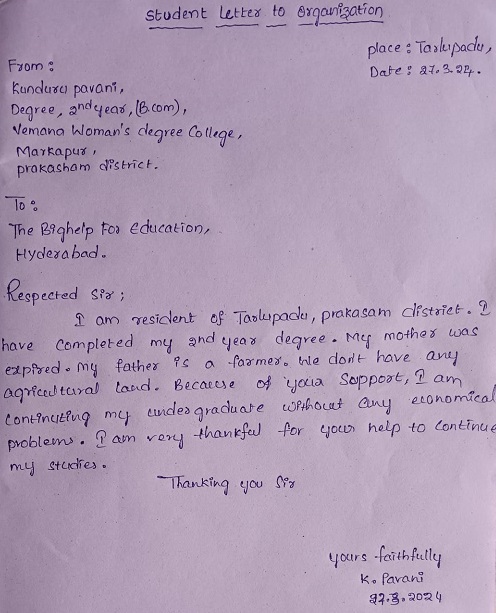 Student Letter to Organization
place : Tarlupadu,
Date : 27.3.24.
From :
Kunduru pavani,
Degree, 2nd year, (B.com),
Vemana Woman's degree College,
Markapur,
prakasham district.
To :
The Bighelp For Education,
Hyderabad.
Respected Sir ;
I am resident of Tarlupadu, prakasam district. I
have completed my 2nd year degree. My mother was
expired. my father is a farmer. We don't have any
agricultural land. Because of your Support, I am
continuting my undergraduate without any economical
problems. I am very thankful for your help to continue
my studies.
Thanking you Sir
yours faithfully
K. Pavani
27.3.2024